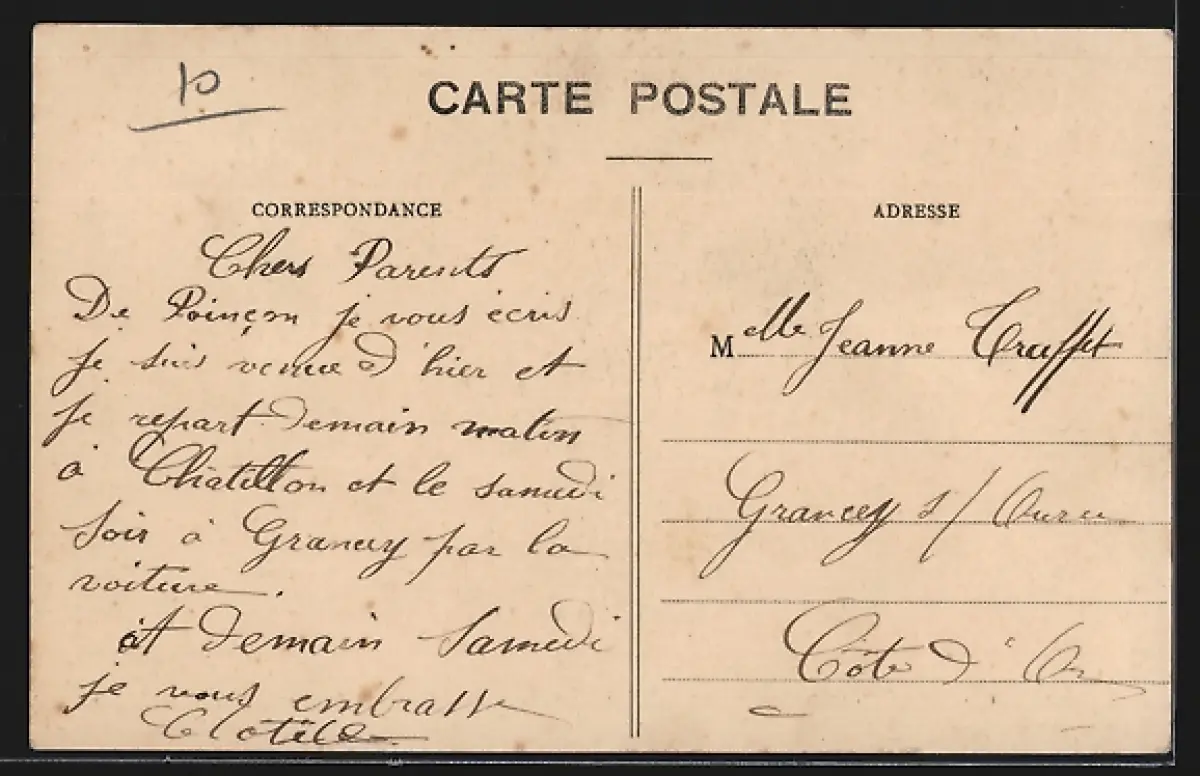 10
CARTE POSTALE
CORRESPONDANCE
Chers Parents
De Poinçon je vous écris
je suis venue d'hier et
je repart demain matin
à Châtillon et le samedi
soir à Grancey par la
voiture.
et demain Samedi
je vous embrasse
Clotilde
ADRESSE
Melle Jeanne Truffet
Grancey s/ Ource
Côte d'Or